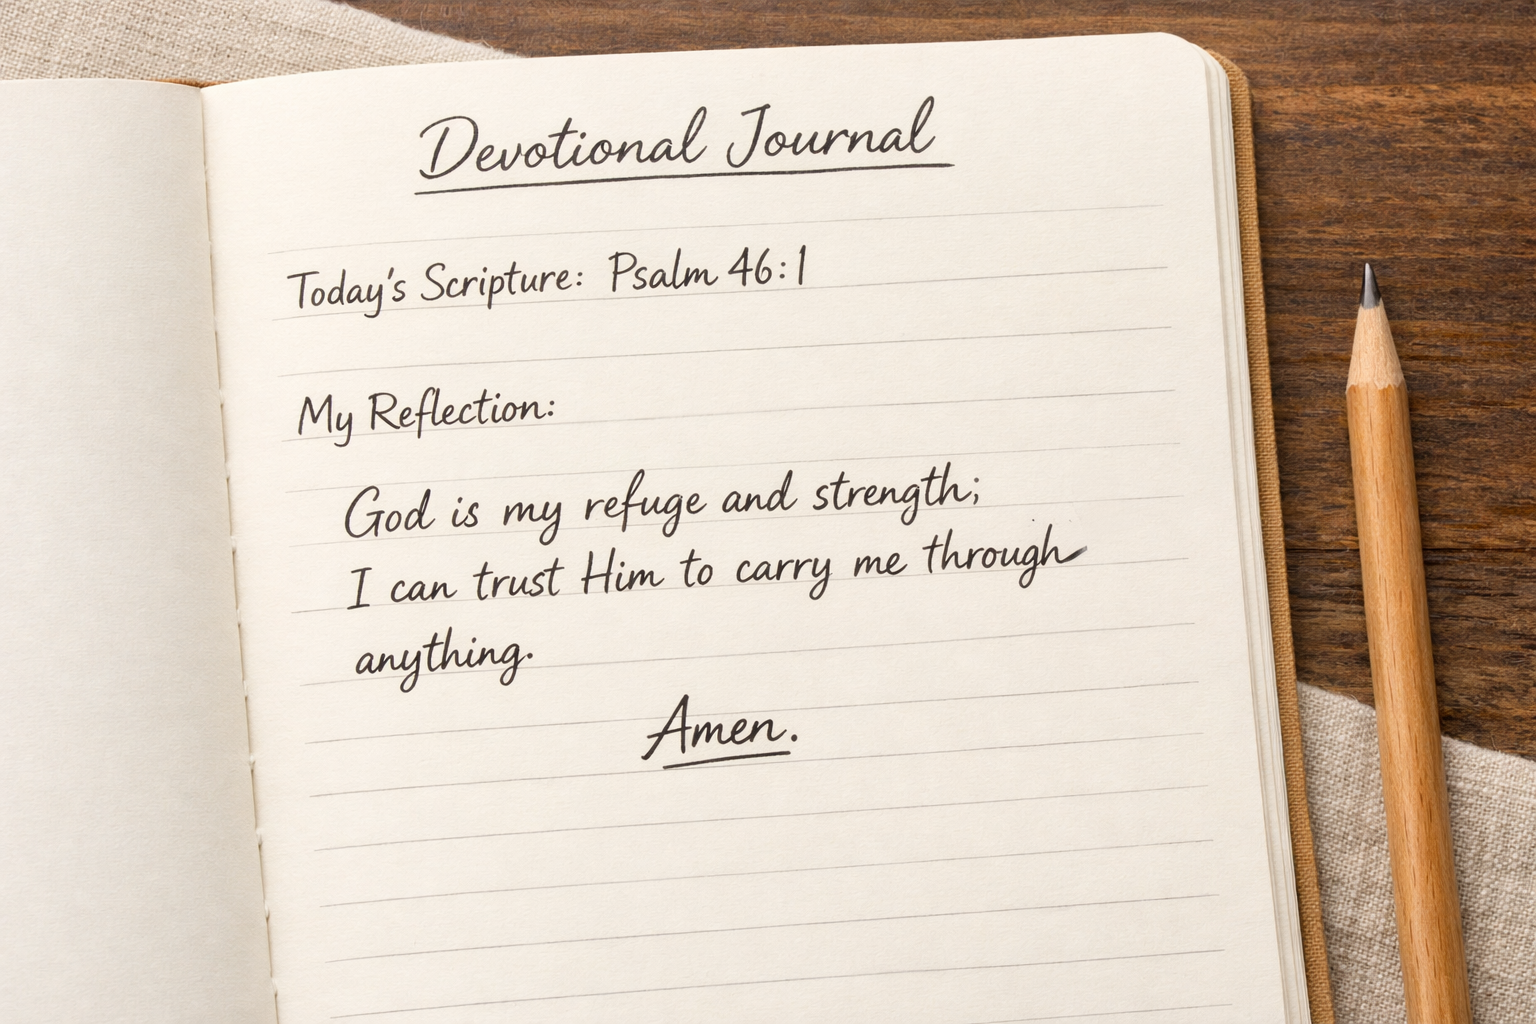 Devotional Journal
Today's Scripture: Psalm 46:1
My Reflection:
God is my refuge and strength;
I can trust Him to carry me through
anything.
Amen.